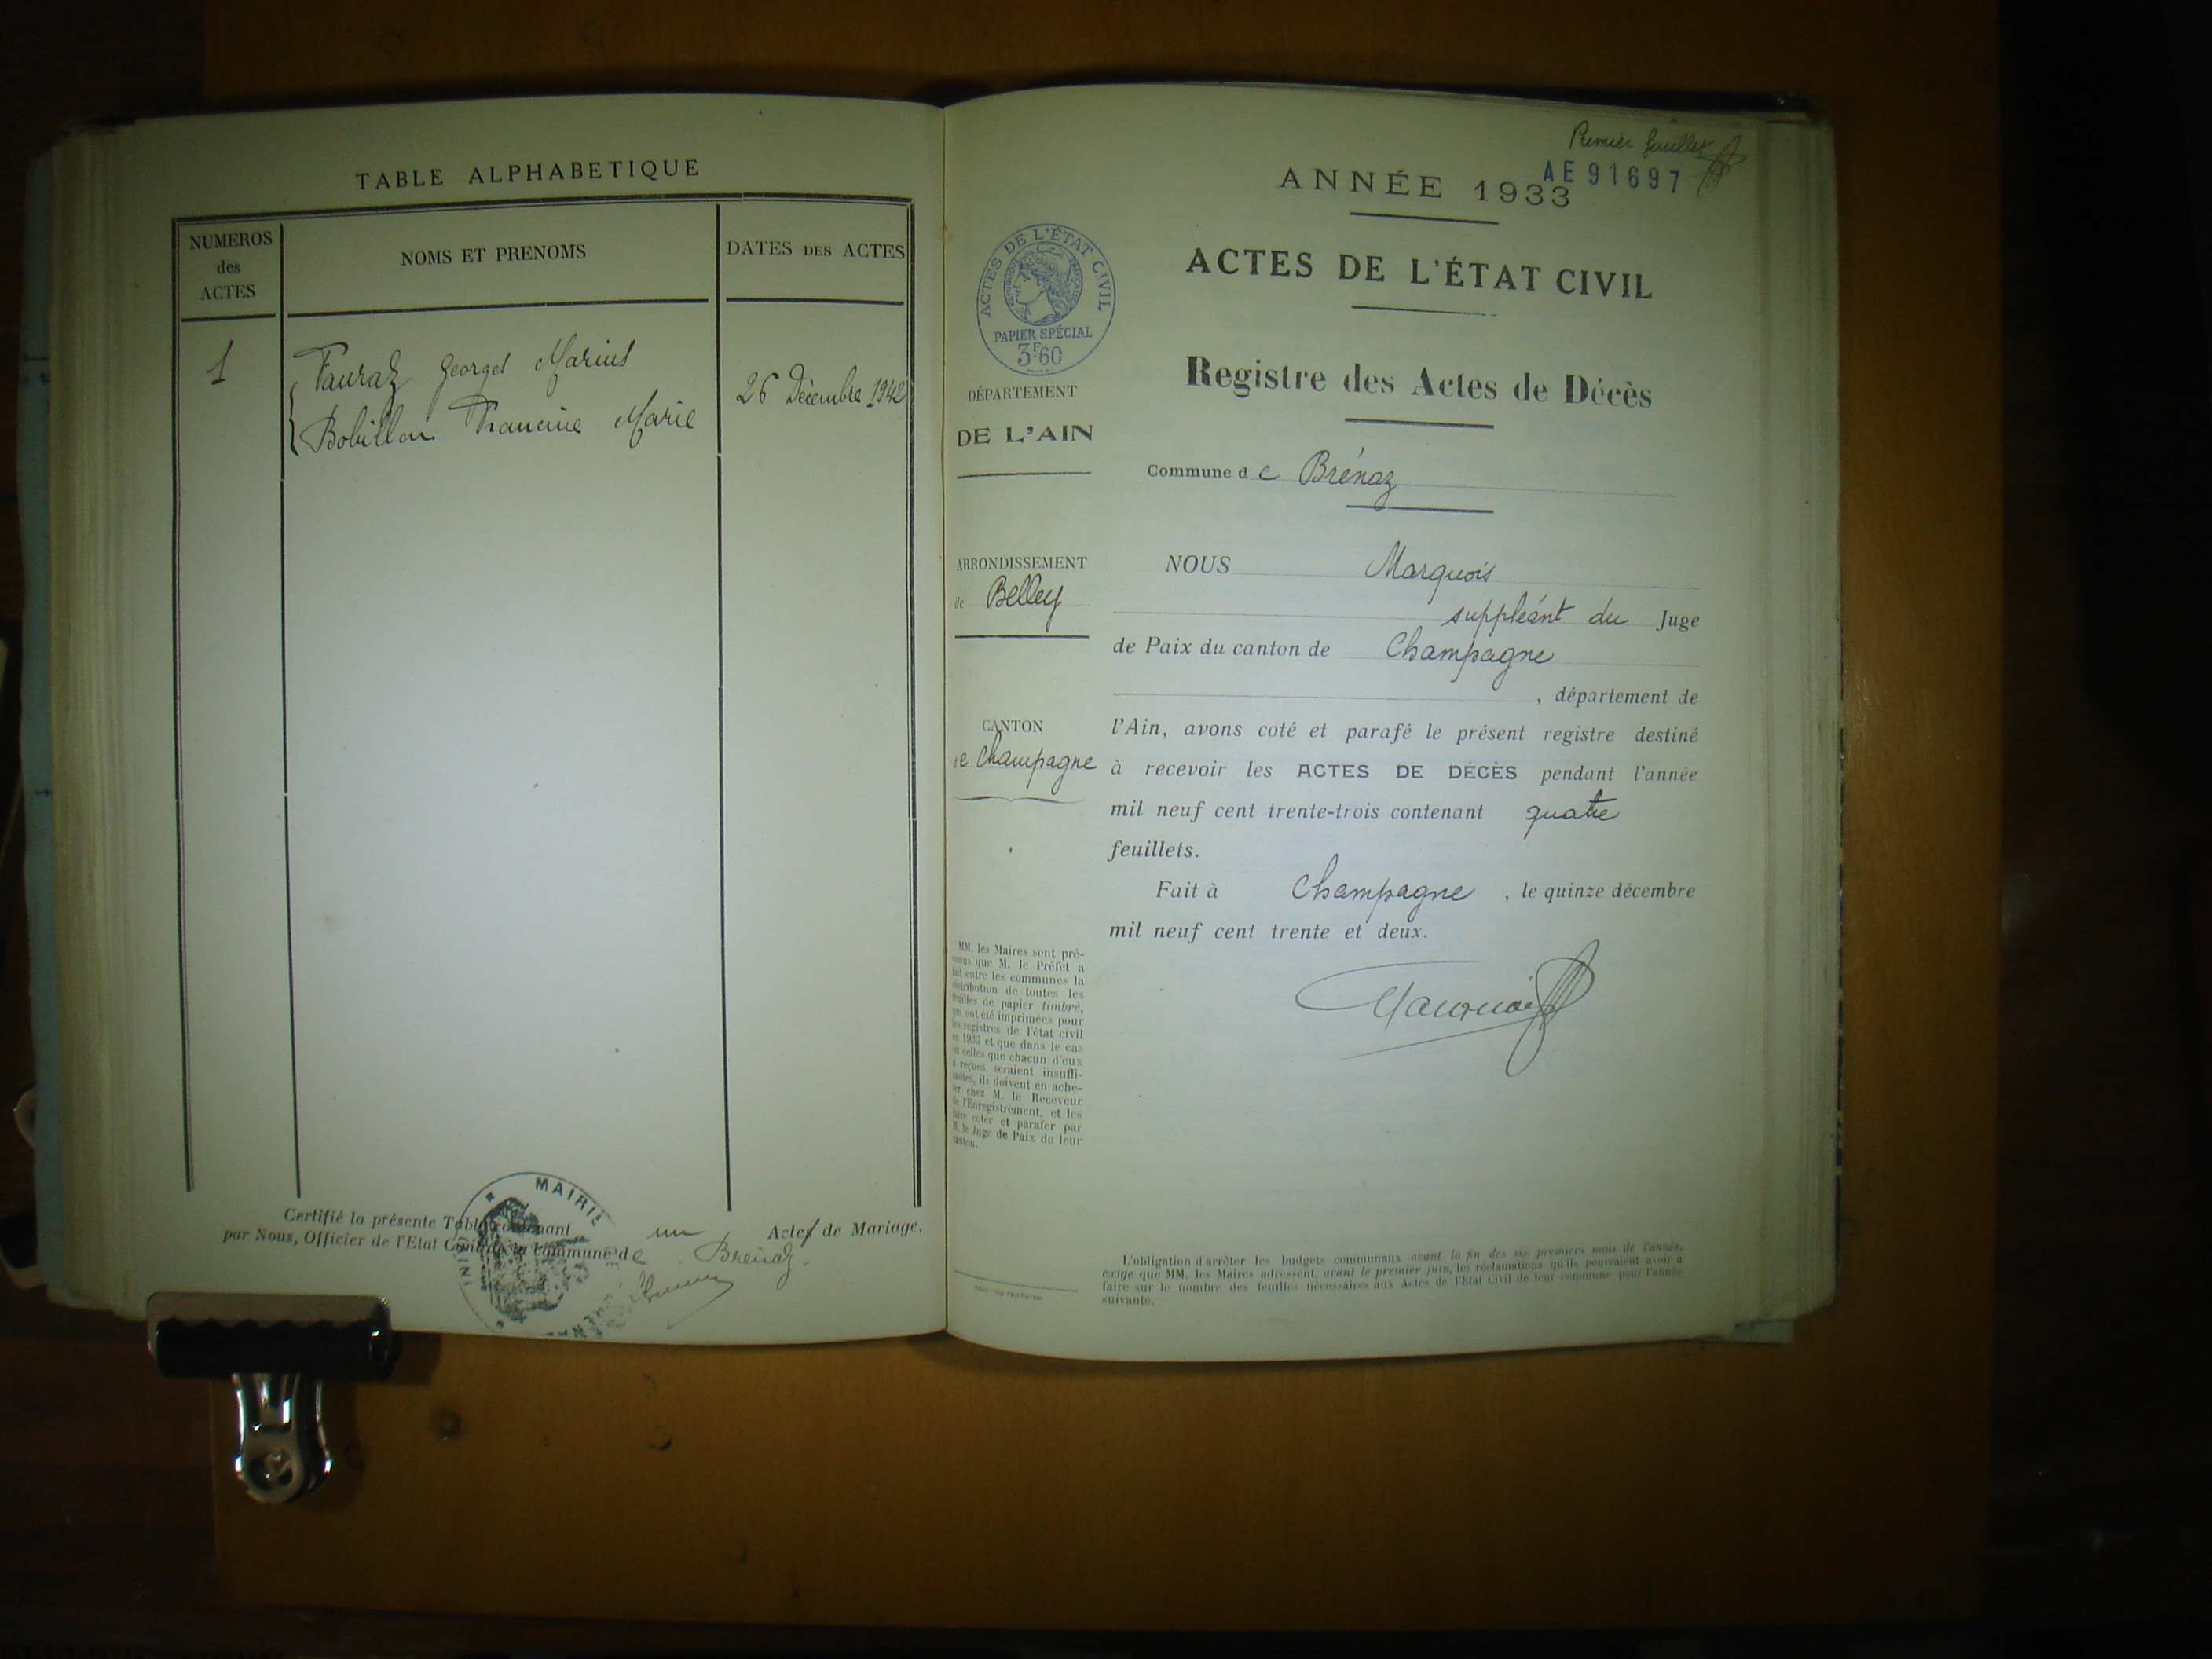 TABLE ALPHABETIQUE
NUMEROS
des
ACTES
NOMS ET PRENOMS
DATES DES ACTES
1
Fauraz Georges Marius
Bobillon Francine Marie
26 Décembre 1942
Certifié la présente Table contenant un Actes de Mariage,
par Nous, Officier de l'Etat Civil de la Commune de Brénaz.
MAIRIE
Premier feuillet
AE 91697
ANNÉE 1933
ACTES DE L'ÉTAT CIVIL
ACTES DE L'ÉTAT CIVIL
PAPIER SPÉCIAL
3F60
Registre des Actes de Décès
DÉPARTEMENT
DE L'AIN
Commune de Brénaz
ARRONDISSEMENT
de Belley
CANTON
de Champagne
NOUS Marquois
suppléant du Juge
de Paix du canton de Champagne
, département de
l'Ain, avons coté et parafé le présent registre destiné
à recevoir les ACTES DE DÉCÈS pendant l'année
mil neuf cent trente-trois contenant quatre
feuillets.
Fait à Champagne, le quinze décembre
mil neuf cent trente et deux.
MM. les Maires sont pré-
venus que M. le Préfet a
fait entre les communes la
distribution de toutes les
feuilles de papier timbré,
qui ont été imprimées pour
les registres de l'état civil
en 1933 et que dans le cas
où celles que chacun d'eux
a reçues seraient insuffi-
santes, ils doivent en ache-
ter chez M. le Receveur
de l'Enregistrement, et les
faire coter et parafer par
M. le Juge de Paix de leur
canton.
L'obligation d'arrêter les budgets communaux avant la fin des six premiers mois de l'année,
exige que MM. les Maires adressent, avant le premier juin, les réclamations qu'ils pourraient avoir à
faire sur le nombre des feuilles nécessaires aux Actes de l'Etat Civil de leur commune pour l'année
suivante.